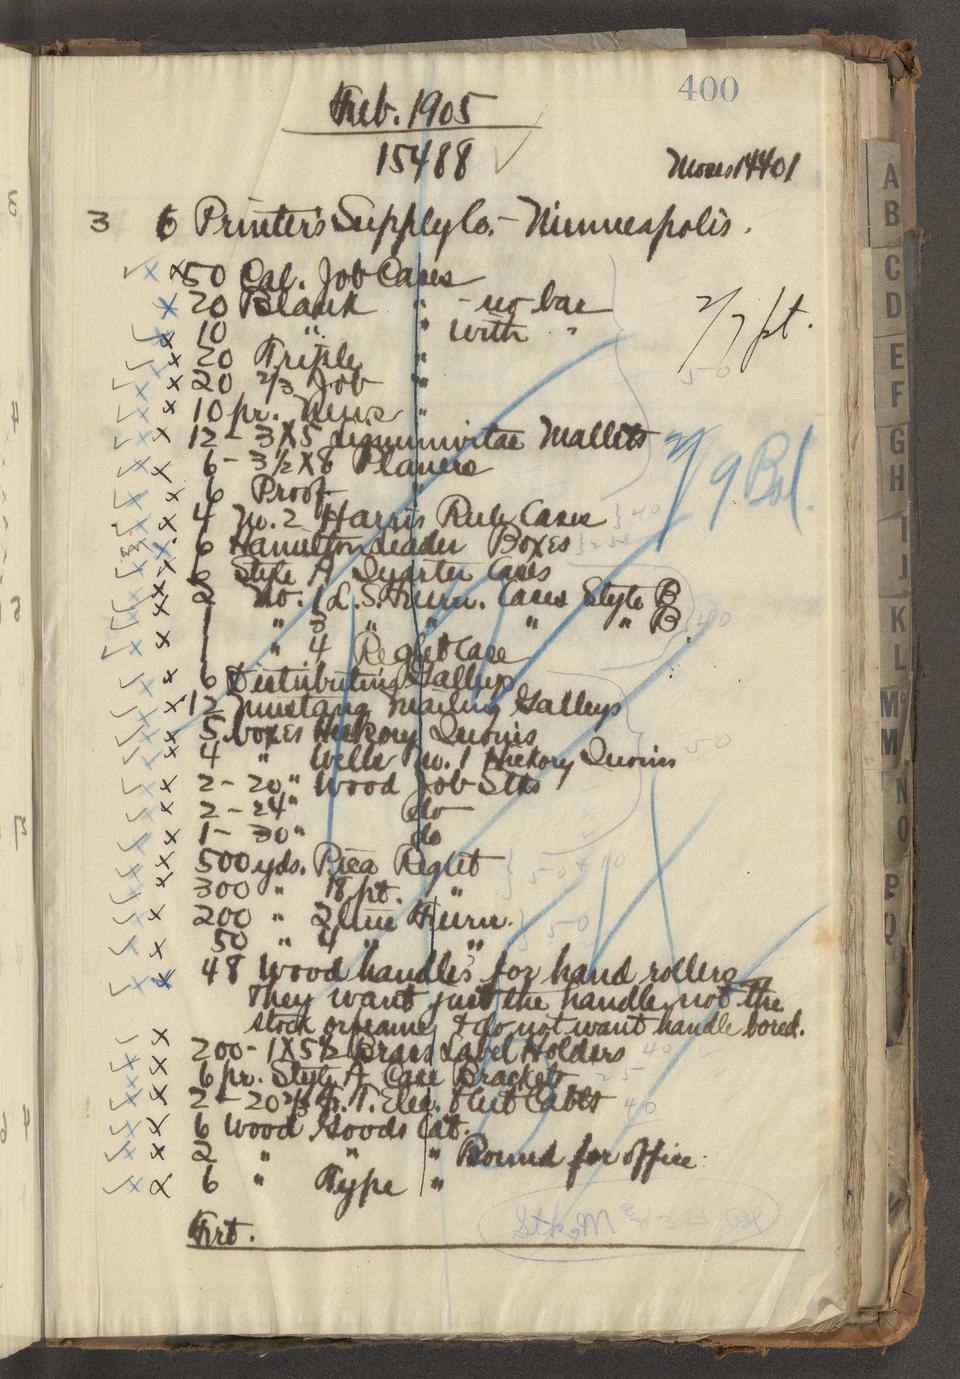 400
Feb. 1905
15488
Moves 14401
3 6 Printers Supply Co. - Minneapolis.
50 Cal. Job Cases
20 Blank " - no bar
10 " " with "
2/7 pt.
20 Triple "
20 2/3 Job "
10 pr. News "
12 - 3X5 Lignumvitae Mallets
6 - 3½X8 Planers
2/9 Bal.
6 Proof "
4 No. 2 Harris Rule Cases
6 Hamilton Leader Boxes
6 Style A Quarter Cases
2 No. 1 L.S. Furn. Cases Style B
1 " 3 " " " " B
1 " 4 Reglet Case
6 Distributing Galleys
12 Mustang Mailing Galleys
5 boxes Hickory Quoins
4 " Wells No. 1 Hickory Quoins
2 - 20" Wood Job Stks
2 - 24" do
1 - 30" do
500 yds. Pica Reglet
300 " 18 pt. "
200 " 2 line Furn.
50 " 4 " "
48 Wood handles for hand rollers
They want just the handle, not the
stock or frame, & do not want handle bored.
200 - 1X5½ Brass Label Holders
6 pr. Style A Case Brackets
2 - 20 2/3 Cabts
6 Wood Goods Cat.
2 " " " Bound for office.
6 " Type "
Frt.
A
B
C
D
E
F
G
H
I
J
K
L
Mc
M
N
O
P
Q